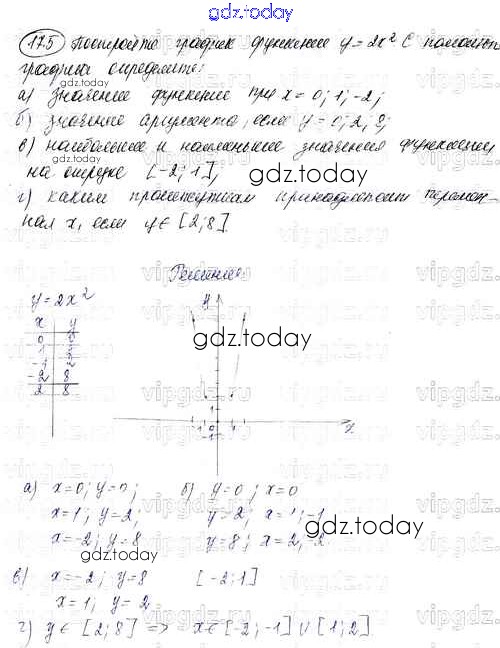 gdz.today
17.5 Постройте график функции y=2x² С помощью
графика определите:
а) значение функции при x=0; 1; -2;
б) значение аргумента, если y=0; 2; 8;
в) наибольшее и наименьшее значения функции
на отрезке [-2; 1];
г) каким промежуткам принадлежит перемен-
ная x, если y∈[2; 8].
Решение
y=2x²
x y
0 0
1 2
-1 2
-2 8
2 8
y
1
-1 0 1 x
-1
а) x=0; y=0; б) y=0; x=0
x=1; y=2; y=2; x=1; -1
x=-2; y=8 y=8; x=2; -2
в) x=-2; y=8 [-2; 1]
x=1; y=2
г) y∈[2; 8] => x∈[-2; -1]∪[1; 2].
gdz.today
gdz.today
gdz.today
gdz.today
gdz.today
gdz.today
vipgdz